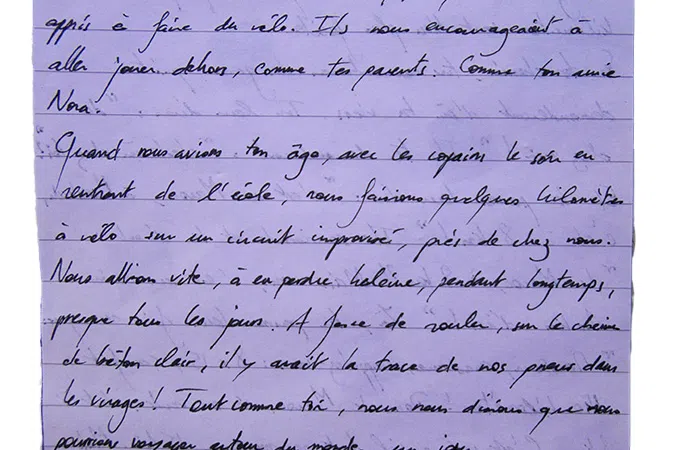 appris à faire du vélo. Ils nous encourageaient à
aller jouer dehors, comme tes parents. Comme ton amie
Nora.
Quand nous avions ton âge, avec les copains le soir en
rentrant de l'école, nous faisions quelques kilomètres
à vélo sur un circuit improvisé, près de chez nous.
Nous allions vite, à en perdre haleine, pendant longtemps,
presque tous les jours. A force de rouler, sur le chemin
de béton clair, il y avait la trace de nos pneus dans
les virages ! Tout comme toi, nous nous disions que nous
pourrions voyager autour du monde, un jour